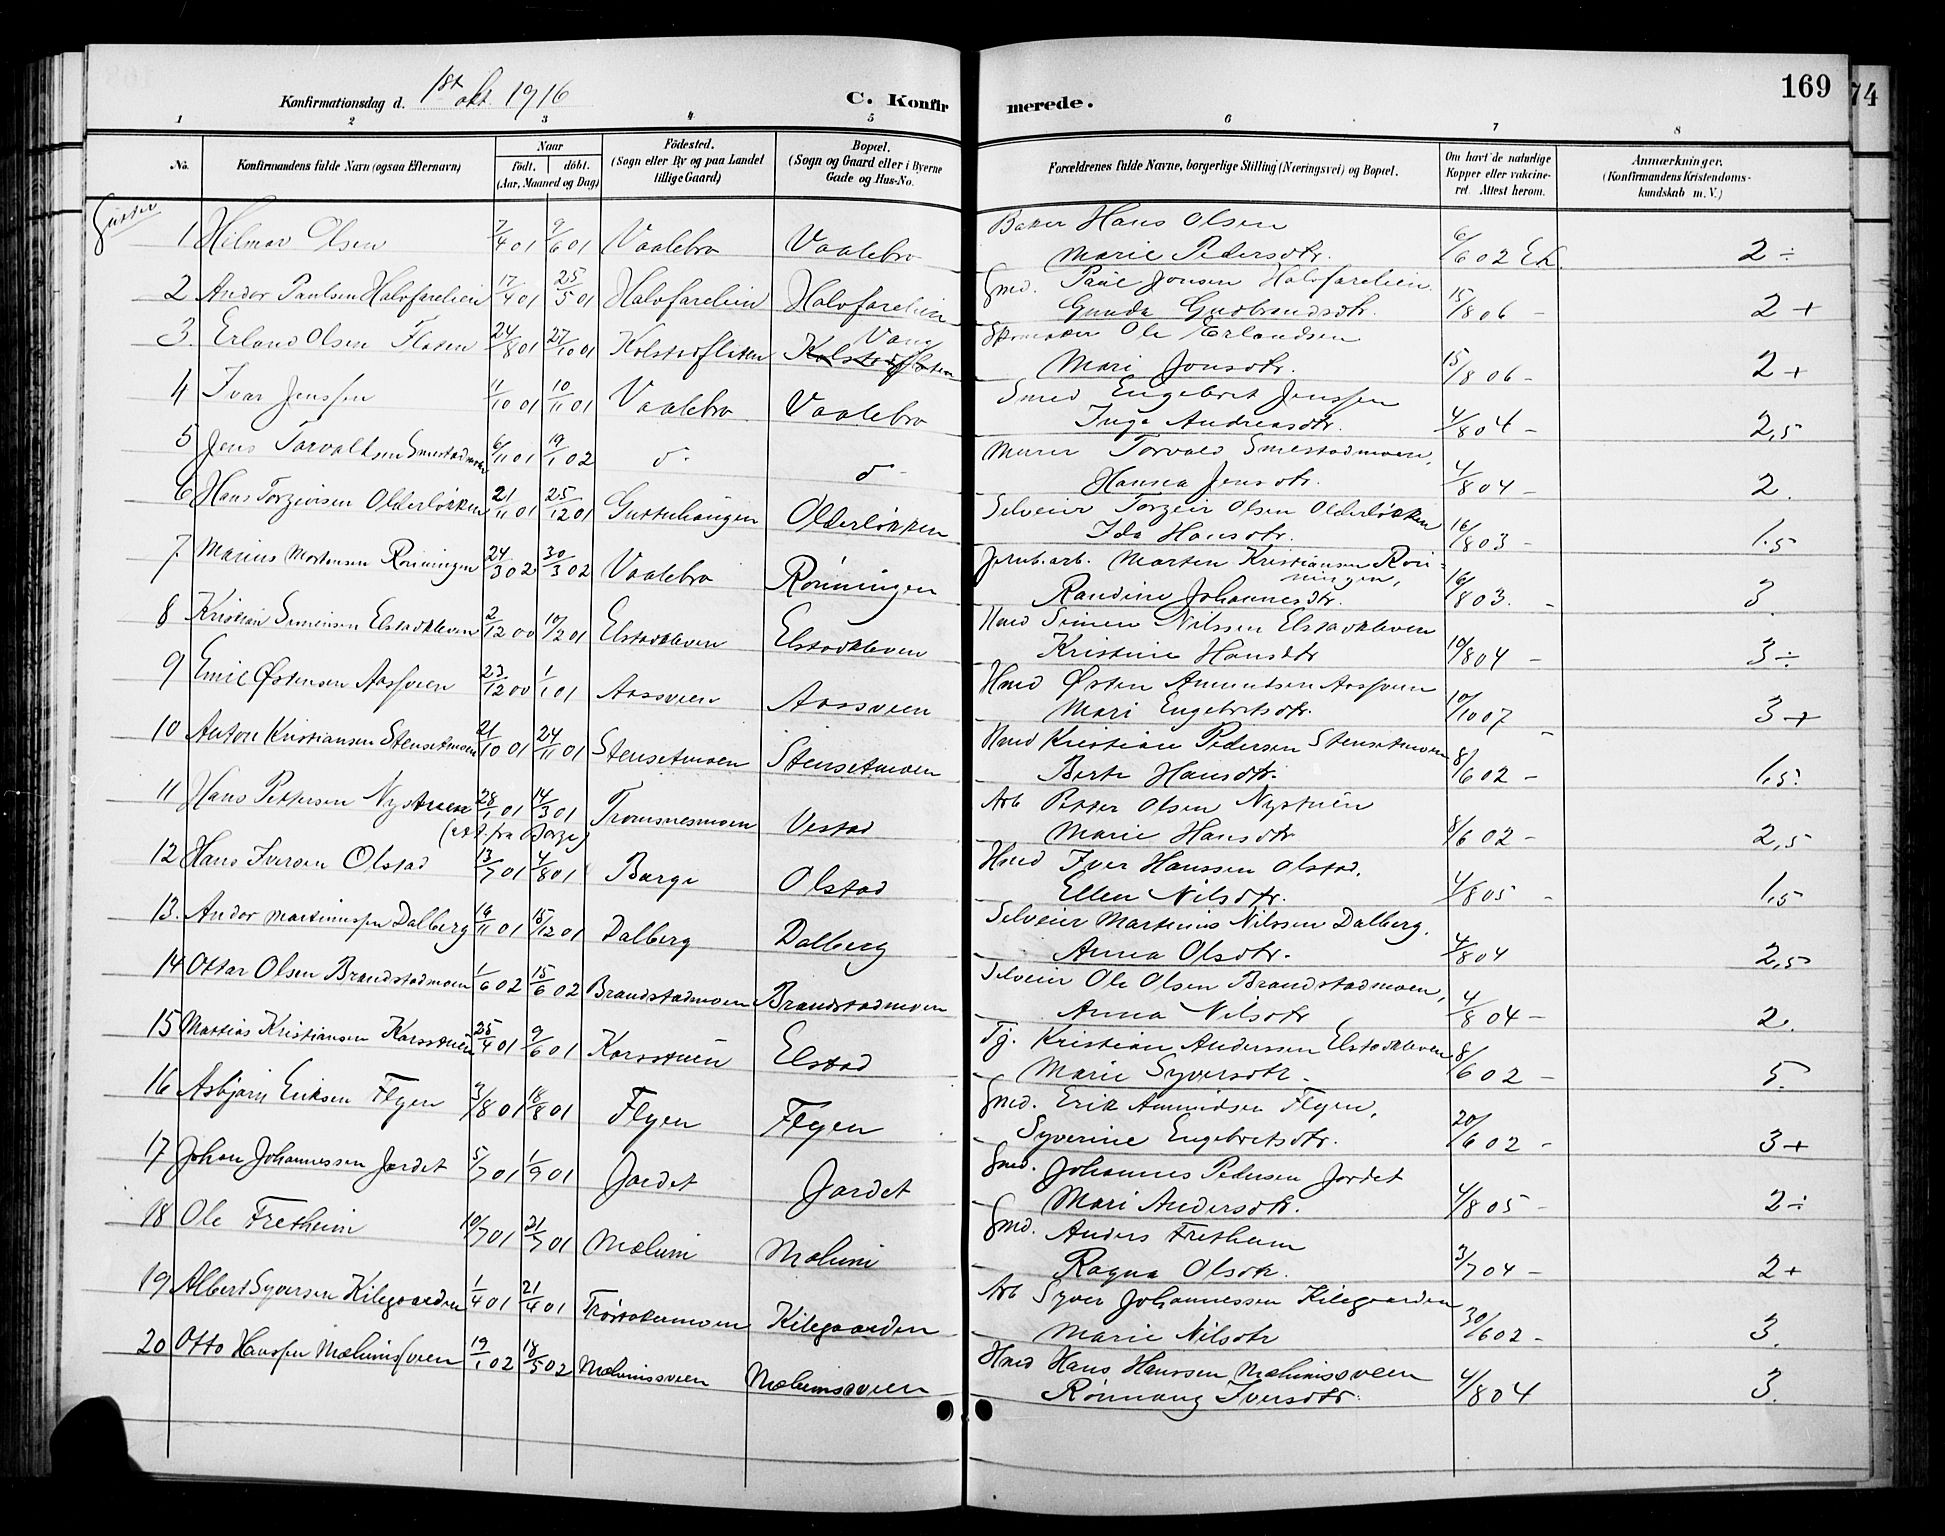 Konfirmationsdag d. 1st okt. 1916
C. Konfirmerede.
169
74
1 2 3 4 5 6 7 8
No.
Konfirmandens fulde Navn (ogsaa Efternavn)
Naar
født. døbt.
(Aar, Maaned og Dag)
Födested.
(Sogn eller By og paa Landet
tillige Gaard)
Bopæl.
(Sogn og Gaard eller i Byerne
Gade og Hus-No.
Forældrenes fulde Navne, borgerlige Stilling (Næringsvei) og Bopæl.
Om havt de naturlige
Kopper eller vakcine-
ret. Attest herom.
Anmærkninger.
(Konfirmandens Kristendoms-
kundskab m. V.)
Gutter
1 Hilmar Olsen 7/4 01 9/6 01 Vaalebro Vaalebro Baker Hans Olsen
Marie Pedersdtr. 6/6 02 2 ÷
2 Andor Paulsen Halvfarelien 17/4 01 25/5 01 Halvfarelien Halvfarelien Gmd. Paul Jonsen Halvfarelien
Gunda Gudbrandsdtr. 15/8 06 – 2 +
3. Erland Olsen Flaten 24/8 01 27/10 01 Kolstadflaten Vang Kolstadflaten Skomaker Ole Erlandsen
Mari Jonsdtr. 15/8 06 – 2 +
4 Ivar Jenssen 1/10 01 10/11 01 Vaalebro Vaalebro Smed Engebret Jenssen
Inga Andreasdtr. 4/8 04 – 2,5
5 Jens Torvaldsen Smestadmoen 6/11 01 19/1 02 d- d- Murer Torvald Smestadmoen,
Hanna Jensdtr. 4/8 04 – 2.
6 Hans Torgeirsen Olderløkken 21/11 01 25/12 01 Gutuhaugen Olderløkken Selveier Torgeir Olsen Olderløkken
Ida Hansdtr. 16/8 03 – 1.5
7. Marius Mortensen Rønningen 24/3 02 30/3 02 Vaalebro Rønningen Jernb.arb. Morten Kristiansen Røn-
ningen,
Randine Johannesdtr. 16/8 03. – 3.
8 Kristian Simensen Elstadkleven 2/12 00 10/2 01 Elstadkleven Elstadkleven Hmd Simen Nilssen Elstadkleven
Kristine Hansdtr 10/8 04 – 3 ÷
9 Emil Østensen Aassveen 23/12 00 1/1 01 Aassveen Aassveen Hmd Østen Amundsen Aassveen
Mari Engebretsdtr. 10/10 07 – 3 +
10 Anton Kristiansen Stensetmoen 21/10 01 24/11 01 Stensetmoen Stensetmoen Hmd Kristian Pedersen Stensetmoen
Berte Hansdtr. 8/6 02 – 1,5.
11 Hans Pettersen Nystuen 28/1 01 14/3 01 Tromsnesmoen Vestad Arb Petter Olsen Nystuen
Marie Hansdtr 8/6 02 – 2,5
12 Hans Iversen Olstad 13/7 01 4/8 01 Borge Olstad Hmd Iver Hanssen Olstad,
Ellen Nilsdtr. 4/8 05 – 1,5
13. Andor Martinussen Dalberg 19/11 01 15/12 01 Dalberg Dalberg Selveier Martinus Nilssen Dalberg.
Anna Olsdtr. 4/8 04 2,5
14 Ottar Olsen Brandstadmoen 1/6 02 15/6 02 Brandstadmoen Brandstadmoen Selveier Ole Olsen Brandstadmoen,
Anna Nilsdtr 4/8 04 – 2.
15 Mattias Kristiansen Korsstuen 25/4 01 9/6 01 Korsstuen Elstad Tj. Kristian Anderssen Elstadkleven
Marie Syversdtr. 8/6 02 – 5.
16 Asbjørn Eriksen Flyen 3/8 01 18/8 01 Flyen Flyen Gmd. Erik Amundsen Flyen,
Syverine Engebretsdtr. 20/6 02 – 3 +
17 Johan Johannessen Jordet 5/7 01 1/9 01 Jordet Jordet Gmd. Johannes Pedersen Jordet
Mari Andersdtr. 4/8 05 – 2 ÷
18 Ole Fretheim 10/7 01 21/7 01 Mælum Mælum Gmd. Anders Fretheim
Ragna Olsdtr. 3/7 04 – 2 +
19 Albert Syversen Kilegaarden 1/4 01 21/4 01 Kilegaarden Arb Syver Johannessen Kilegaarden
Marie Nilsdtr 30/6 02 – 3.
20 Otto Hanssen Mælumssveen 19/1 02 18/5 02 Mælumssveen Mælumssveen Hmd Hans Hanssen Mælumssveen
Rønnaug Iversdtr. 4/8 04 3.